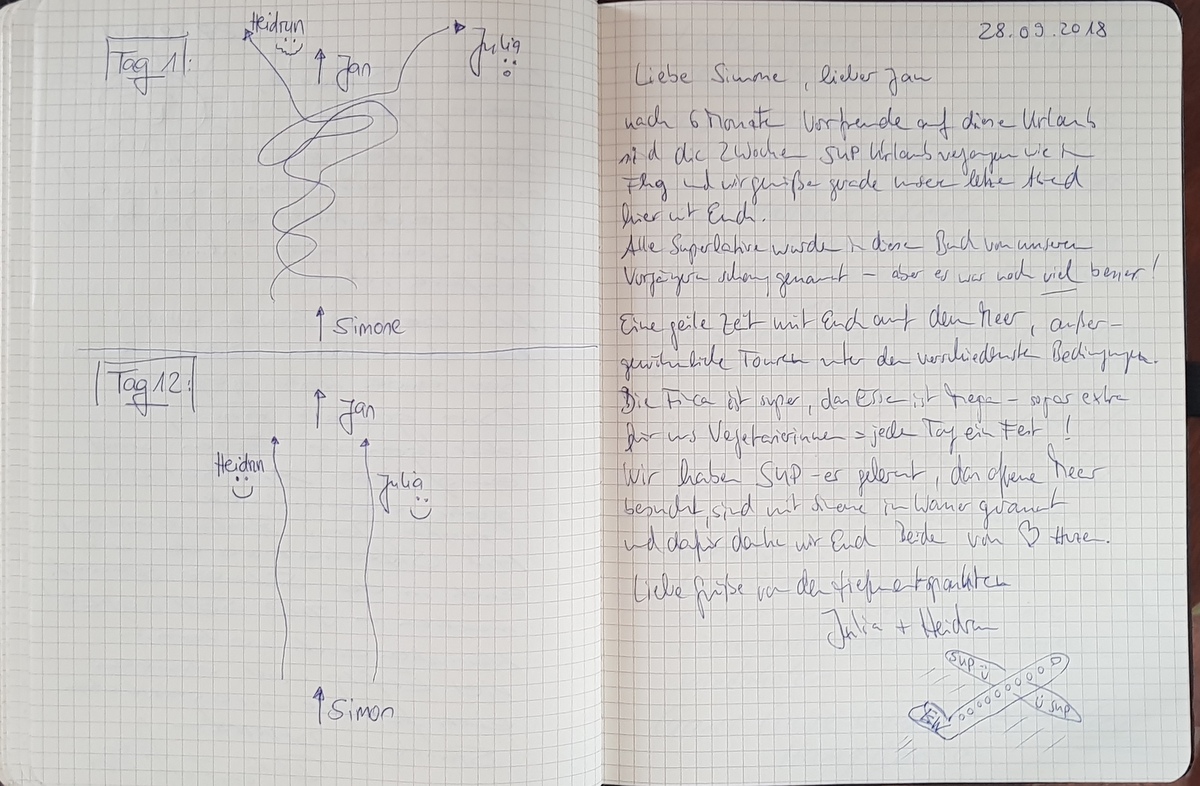 Tag 1:
Heidrun
Jan
Julia
Simone
Tag 12:
Jan
Heidrun
Julia
Simon
28.09.2018
Liebe Simone, lieber Jan
nach 6 Monate Vorfreude auf diese Urlaub
sind die 2 Wochen SUP Urlaub vergangen wie im
Flug und wir genieße gerade unsere letzte Abend
hier mit Euch.
Alle Superlative wurden in diese Buch von unseren
Vorgängern schon genannt – aber es war noch viel besser!
Eine geile Zeit mit Euch auf dem Meer, außer-
gewöhnliche Touren unter den verschiedenste Bedingungen.
Die Finca ist super, das Esse ist Mega – sogar extra
für uns Vegetarierinnen = jede Tag ein Fest !
Wir haben SUP-es gelernt, das offene Meer
besucht, sind mit im Wasser
und dafür danke wir Euch Beide von ♡ Herzen.
Liebe Grüße von den tiefenentspannten
Julia + Heidrun
SUP
SUP